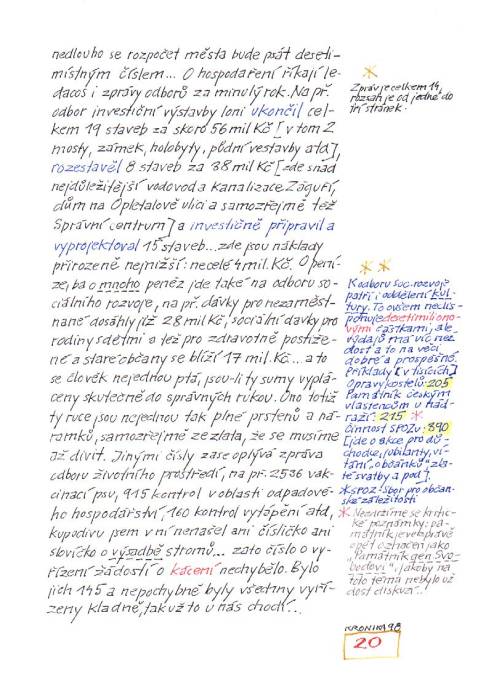 nedlouho se rozpočet města bude psát deseti-
místným číslem... O hospodaření říkají le-
dacos i zprávy odborů za minulý rok. Na př.
odbor investiční výstavby loni ukončil cel-
kem 19 staveb za skoro 56 mil Kč [v tom 2
mosty, zámek, holobyty, půdní vestavby atd],
rozestavěl 8 staveb za 38 mil Kč [zde snad
nejdůležitější vodovod a kanalizace Záguří,
dům na Opletalově ulici a samozřejmě též
Správní centrum] a investičně připravil a
vyprojektoval 15 staveb... zde jsou náklady
přirozeně nejnižší: necelé 4 mil. Kč. O peni-
ze jba o mnoho peněz jde také na odboru so-
ciálního rozvoje, na př. dávky pro nezaměst-
nané dosáhly již 28 mil Kč, sociální dávky pro
rodiny s dětmi a též pro zdravotně postiže-
né a staré občany se blíží 17 mil. Kč... a to
se člověk nejednou ptá, jsou-li ty sumy vyplá-
ceny skutečně do správných rukou. Ono totiž
ty ruce jsou nejednou tak plné prstenů a ná-
ramků, samozřejmě ze zlata, že se musíme
až divit. Jinými čísly zase oplývá zpráva
odboru životního prostředí, na př. 2536 vak-
cinací psů, 415 kontrol v oblasti odpadové-
ho hospodářství, 160 kontrol vytápění atd,
kupodivu jsem v ní nenašel ani číslíčko ani
slovíčko o výsadbě stromů... zato číslo o vy-
řízení žádostí o kácení nechybělo. Bylo
jich 145 a nepochybně byly všechny vyří-
zeny kladně, tak už to u nás chodí...
Zpráv je celkem 14,
rozsah je od jedné do
tří stránek.
K odboru soc. rozvoje
patří i oddělení kul-
tury. To ovšem nedis-
ponuje desetimiliono-
vými částkami, ale
výdajů má víc než
dost a to na věci
dobré a prospěšné.
Příklady [v tisících]
Opravy kostelů: 205
Památník českým
vlastencům u nád-
raží: 215 *
Činnost SPOZu: 890
[jde o akce pro dů-
chodce, jubilanty, ví-
tání občánků, zla-
té svatby a pod].
* SPOZ - Sbor pro občan-
ské záležitosti
* Neodržíme se kritic-
ké poznámky: pa-
mátník je veleprávě
opět označen jako
„Památník gen Svo-
bodovi", jakoby na
toto téma nebylo už
dost diskuzí...
KRONIKA 98
20